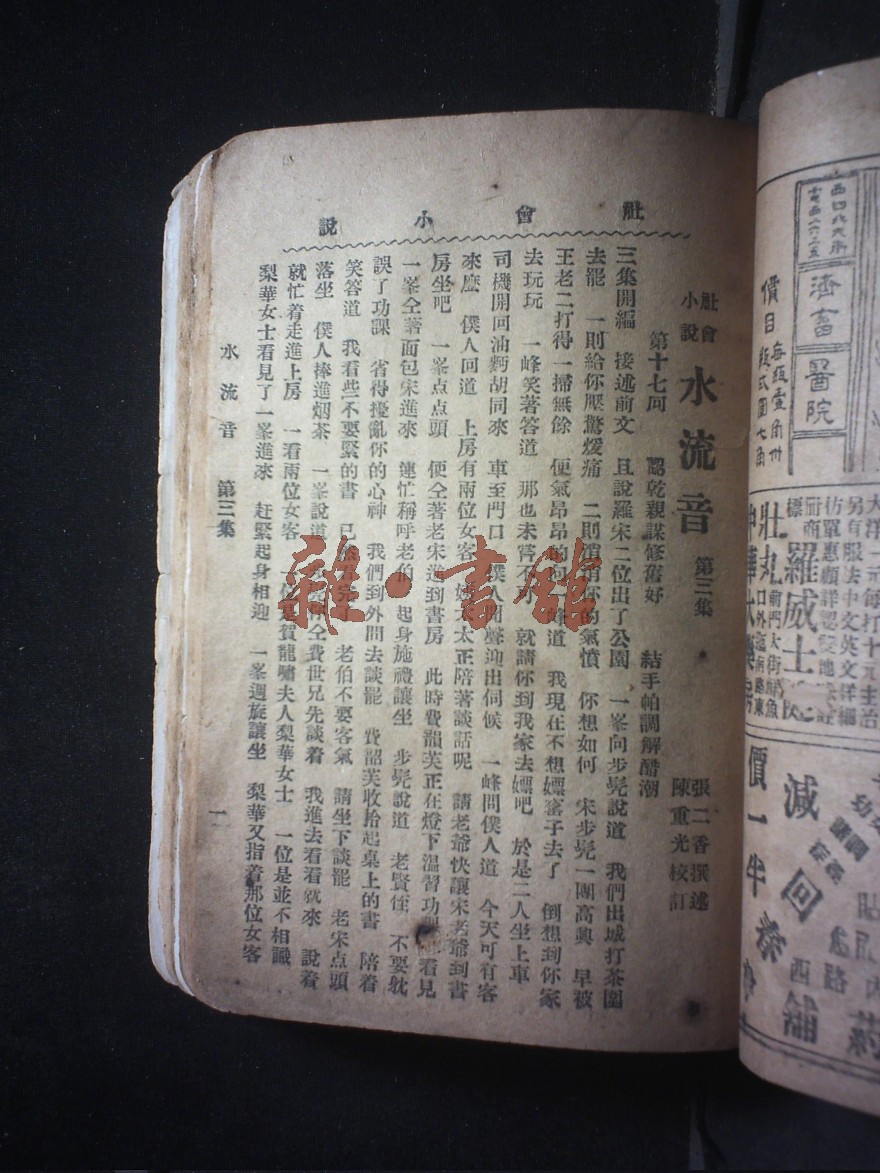 社會小說
社會小說 水流音 第三集
張二香撰述
陳重光校訂
第十七回 認乾親謀修舊好 結手帕調解醋潮
三集開編 接述前文 且說羅宋二位出了公園 一峯向步髡說道 我們出城打茶圍
去罷 一則給你壓驚煖痛 二則消消你的氣憤 你想如何 宋步髡一團高興 早被
王老二打得一掃無餘 便氣昂昂的向一峰道 我現在不想嫖窰子去了 倒想到你家
去玩玩 一峰笑著答道 那也未甞不可 就請你到我家去嫖吧 於是二人坐上車
司機開回油麫胡同來 車至門口 僕人聞聲迎出伺候 一峰問僕人道 今天可有客
來麽 僕人回道 上房有兩位女客 姨太太正陪著談話呢 請老爺快讓宋老爺到書
房坐吧 一峯点点頭 便仝著老宋進到書房 此時費韻芙正在燈下溫習功課 看見
一峯仝著面包宋進來 連忙稱呼老伯 起身施禮讓坐 步髡說道 老賢侄 不要躭
誤了功課 省得擾亂你的心神 我們到外間去談罷 費韻芙收拾起桌上的書 陪着
笑答道 我看些不要緊的書 已然看完 老伯不要客氣 請坐下談罷 老宋点頭
落坐 僕人捧進烟茶 一峯說道 仝費世兄先談着 我進去看看就來 說着
就忙着走進上房 一看兩位女客 一位是賀龍嘯夫人梨華女士 一位是並不相識
梨華女士看見了一峯進來 赶緊起身相迎 一峯週旋讓坐 梨華又指着那位女客
水流音 第三集
一
雜·書館
濟畜醫院
價目
大洋 元每打十元主治
另有服法中文英文詳細
羅威士
壯丸
前門大街
減價一半
回春
西
舖
药